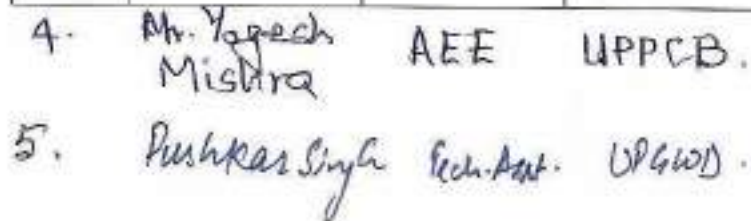 4. Mr. Yogesh Mishra AEE UPPCB.
5. Pushkar Singh Tech. Asst. UPGWD.